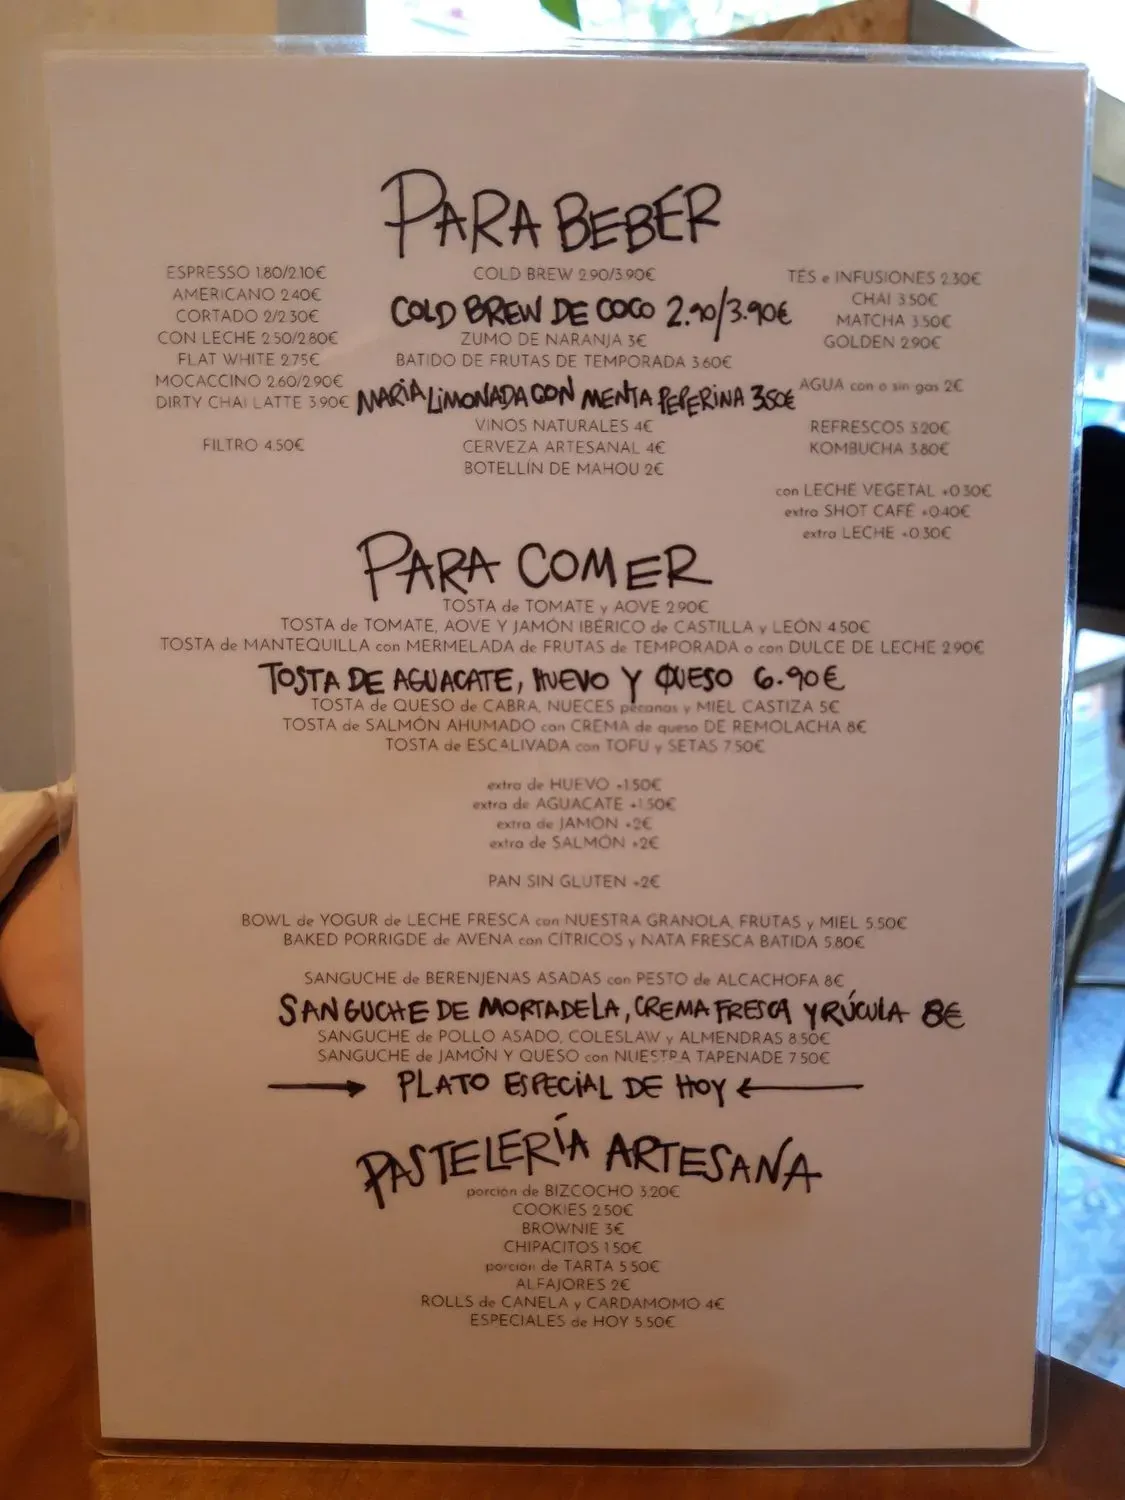 PARA BEBER
ESPRESSO 1.80/2.10€
AMERICANO 2.40€
CORTADO 2/2.30€
CON LECHE 2.50/2.80€
FLAT WHITE 2.75€
MOCACCINO 2.60/2.90€
DIRTY CHAI LATTE 3.90€
FILTRO 4.50€
COLD BREW 2.90/3.90€
COLD BREW DE COCO 2.90/3.90€
ZUMO DE NARANJA 3€
BATIDO DE FRUTAS DE TEMPORADA 3.60€
MARIA LIMONADA CON MENTA PEPERINA 3.50€
VINOS NATURALES 4€
CERVEZA ARTESANAL 4€
BOTELLÍN DE MAHOU 2€
TÉS e INFUSIONES 2.30€
CHAI 3.50€
MATCHA 3.50€
GOLDEN 2.90€
AGUA con o sin gas 2€
REFRESCOS 3.20€
KOMBUCHA 3.80€
con LECHE VEGETAL +0.30€
extra SHOT CAFÉ +0.40€
extra LECHE +0.30€
PARA COMER
TOSTA de TOMATE y AOVE 2.90€
TOSTA de TOMATE, AOVE Y JAMÓN IBÉRICO de CASTILLA y LEÓN 4.50€
TOSTA de MANTEQUILLA con MERMELADA de FRUTAS de TEMPORADA o con DULCE DE LECHE 2.90€
TOSTA DE AGUACATE, HUEVO Y QUESO 6.90€
TOSTA de QUESO de CABRA, NUECES pecanas y MIEL CASTIZA 5€
TOSTA de SALMÓN AHUMADO con CREMA de queso DE REMOLACHA 8€
TOSTA de ESCALIVADA con TOFU y SETAS 7.50€
extra de HUEVO +1.50€
extra de AGUACATE +1.50€
extra de JAMÓN +2€
extra de SALMÓN +2€
PAN SIN GLUTEN +2€
BOWL de YOGUR de LECHE FRESCA con NUESTRA GRANOLA, FRUTAS y MIEL 5.50€
BAKED PORRIGDE de AVENA con CÍTRICOS y NATA FRESCA BATIDA 5.80€
SANGUCHE de BERENJENAS ASADAS con PESTO de ALCACHOFA 8€
SANGUCHE DE MORTADELA, CREMA FRESCA Y RÚCULA 8€
SANGUCHE de POLLO ASADO, COLESLAW y ALMENDRAS 8.50€
SANGUCHE de JAMÓN Y QUESO con NUESTRA TAPENADE 7.50€
PLATO ESPECIAL DE HOY
PASTELERÍA ARTESANA
porción de BIZCOCHO 3.20€
COOKIES 2.50€
BROWNIE 3€
CHIPACITOS 1.50€
porción de TARTA 5.50€
ALFAJORES 2€
ROLLS de CANELA y CARDAMOMO 4€
ESPECIALES de HOY 5.50€